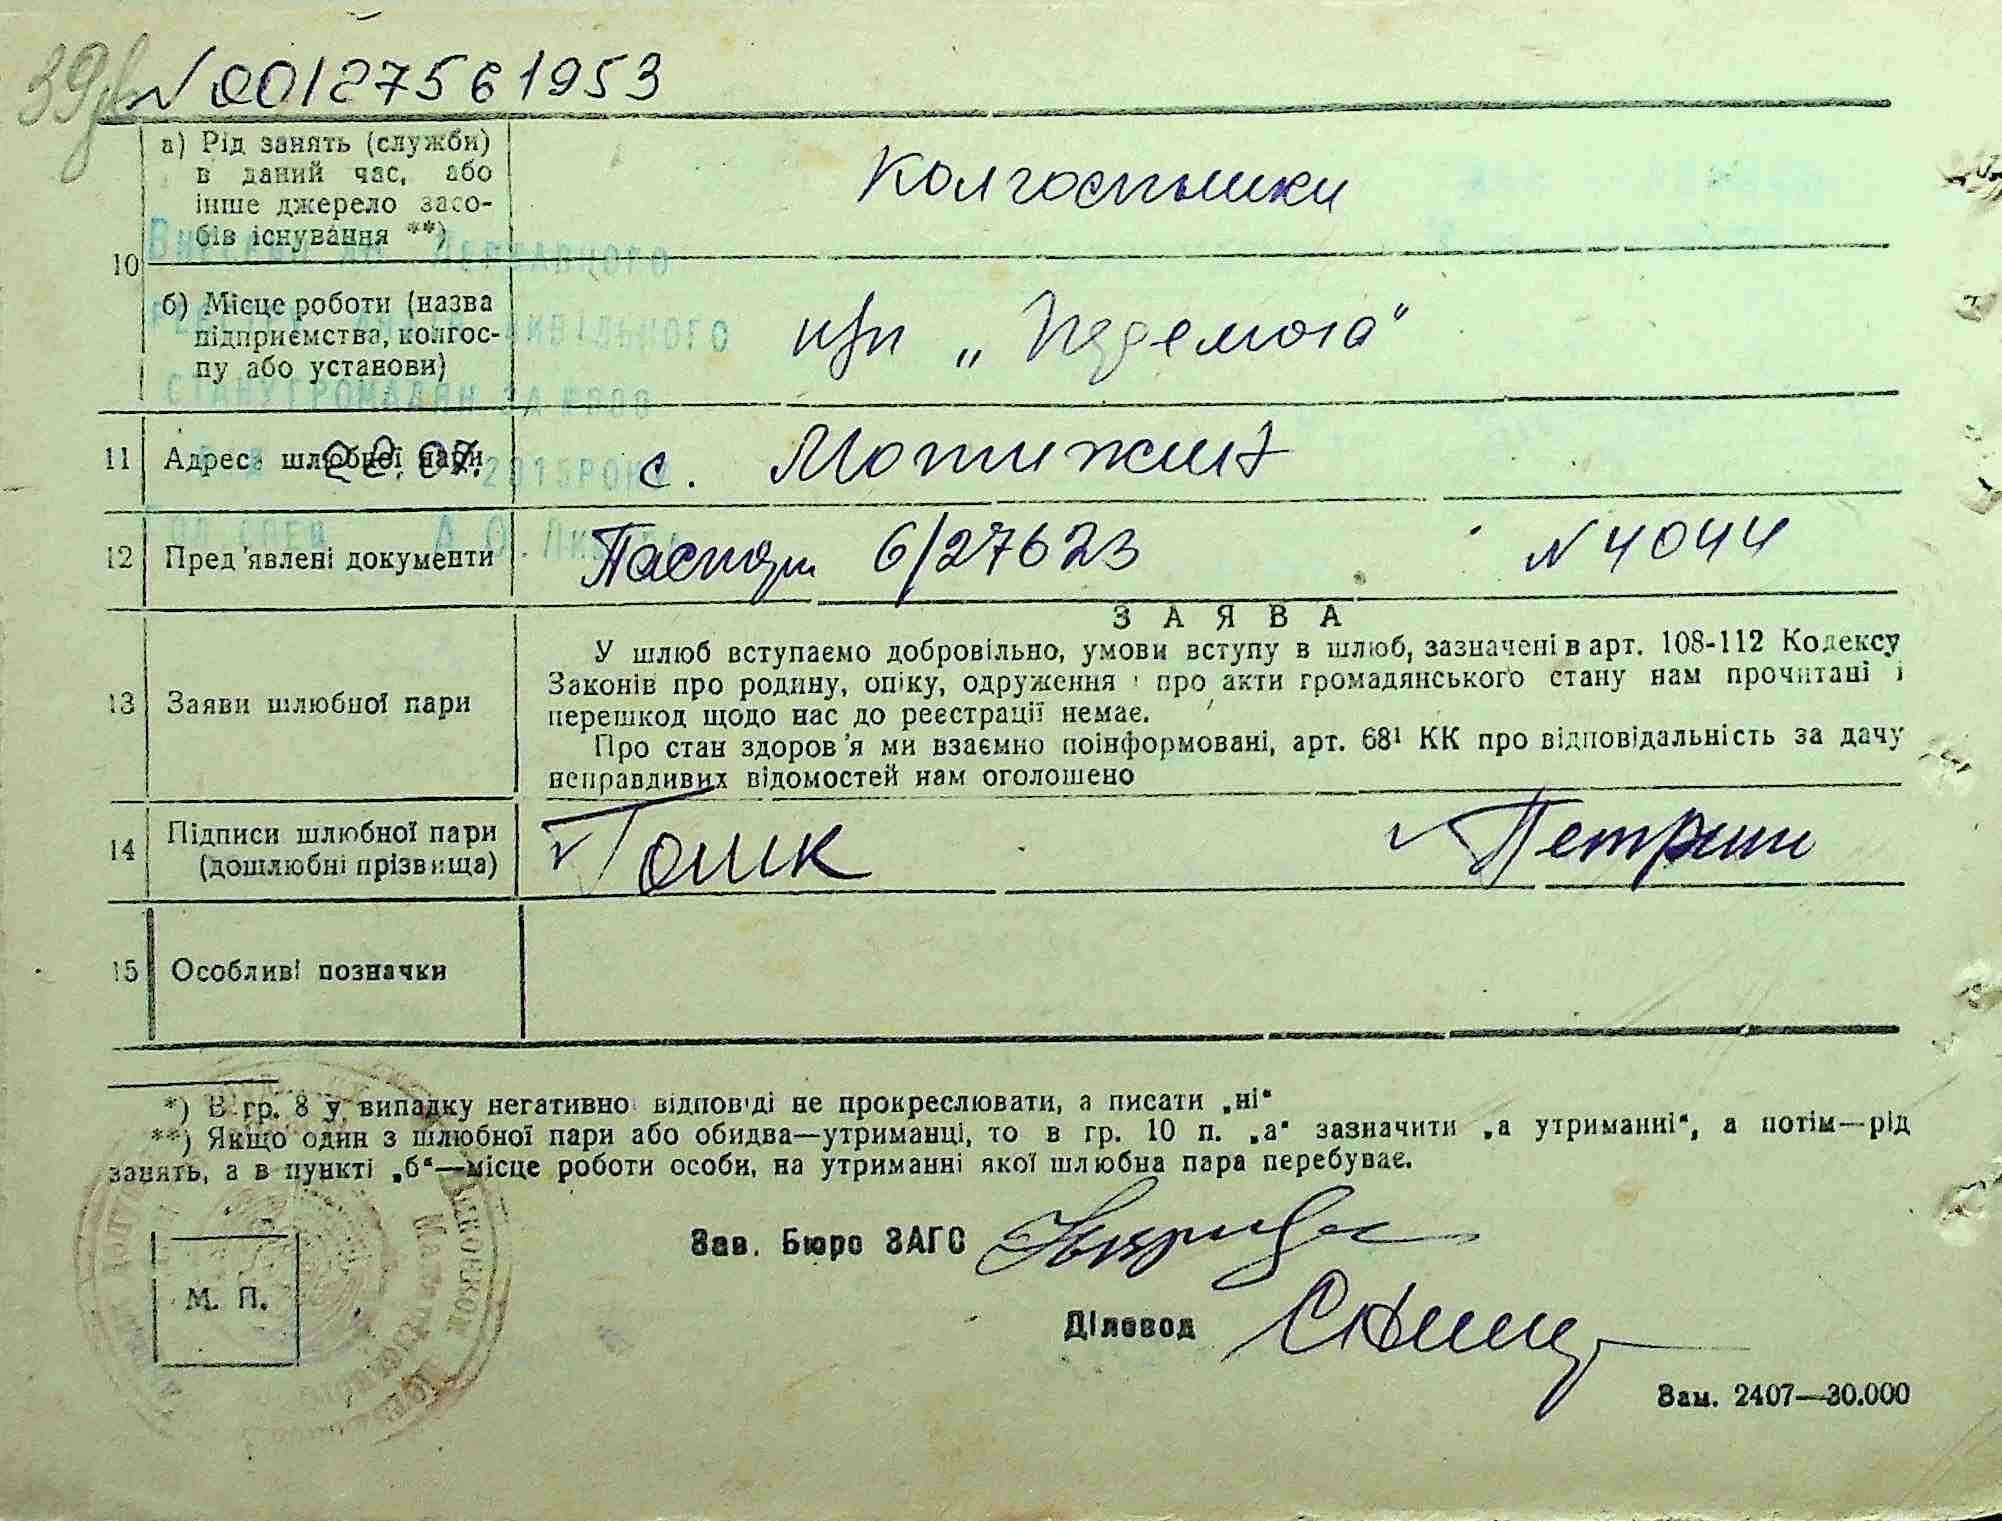 39
N 00127561953
а) Рід занять (служби)
в даний час, або
інше джерело засо-
бів існування **)
Колгоспники
10
б) Місце роботи (назва
підприємства, колгос-
пу або установи)
к/г „Перемога"
Внесено до Державного
реєстру актів цивільного
стану громадян за №00
22.07. 2015 року
11 Адреса шлюбної пари
с. Мотижин
12 Пред'явлені документи
Паспорт 6/27623 N 4044
ЗАЯВА
13 Заяви шлюбної пари
У шлюб вступаємо добровільно, умови вступу в шлюб, зазначені в арт. 108-112 Кодексу
Законів про родину, опіку, одруження і про акти громадянського стану нам прочитані і
перешкод щодо нас до реєстрації немає.
Про стан здоров'я ми взаємно поінформовані, арт. 68¹ КК про відповідальність за дачу
неправдивих відомостей нам оголошено
14 Підписи шлюбної пари
(дошлюбні прізвища)
15 Особливі позначки
*) В гр. 8 у випадку негативної відповіді не прокреслювати, а писати „ні"
**) Якщо один з шлюбної пари або обидва—утриманці, то в гр. 10 п. „а" зазначити „а утриманні", а потім—рід
занять, а в пункті „б"—місце роботи особи, на утриманні якої шлюбна пара перебуває.
Зав. Бюро ЗАГС
М. П.
Діловод
Зам. 2407—30.000